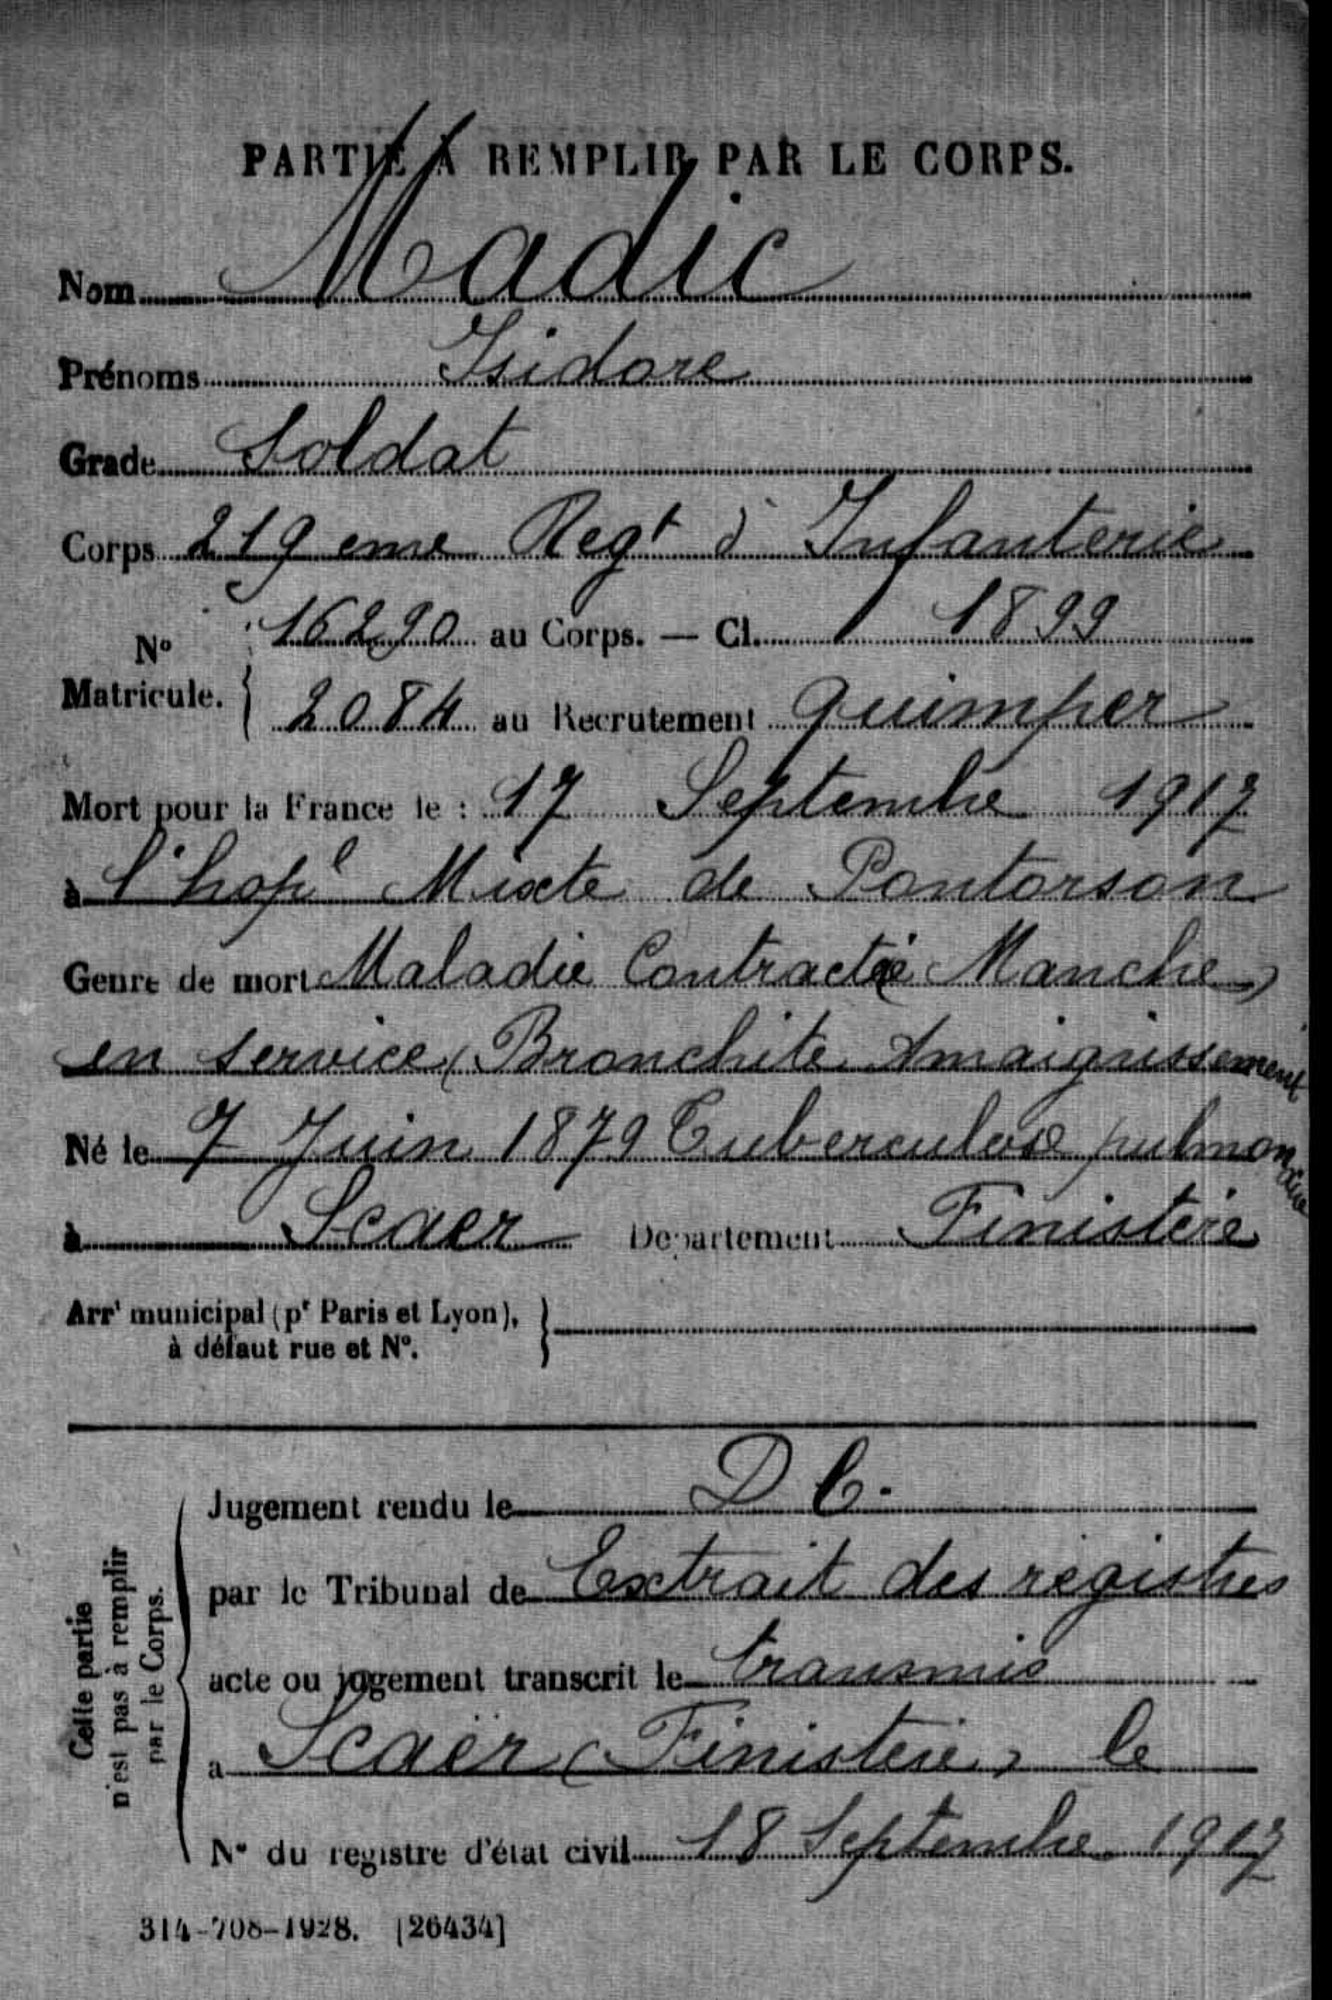 PARTIE À REMPLIR PAR LE CORPS.
Nom Madic
Prénoms Isidore
Grade Soldat
Corps 219 eme Regt d' Infanterie
No Matricule. { 16290 au Corps. — Cl. 1899
2084 au Recrutement quimper
Mort pour la France le : 17 Septembre 1917
à l'hopl Mixte de Pontorson
Genre de mort Maladie Contractée Manche)
en service (Bronchite Amaigrissement
Né le 7 Juin 1879 Tuberculose pulmonaire
à Scaer Departement Finistère
Arrt municipal (pr Paris et Lyon), }
à défaut rue et N°.
Cette partie
n'est pas à remplir
par le Corps.
Jugement rendu le D C.
par le Tribunal de Extrait des régistres
acte ou jugement transcrit le transmis
a Scaër (Finistère) le
N° du registre d'état civil 18 Septembre 1917
314-708-1928. [26434]